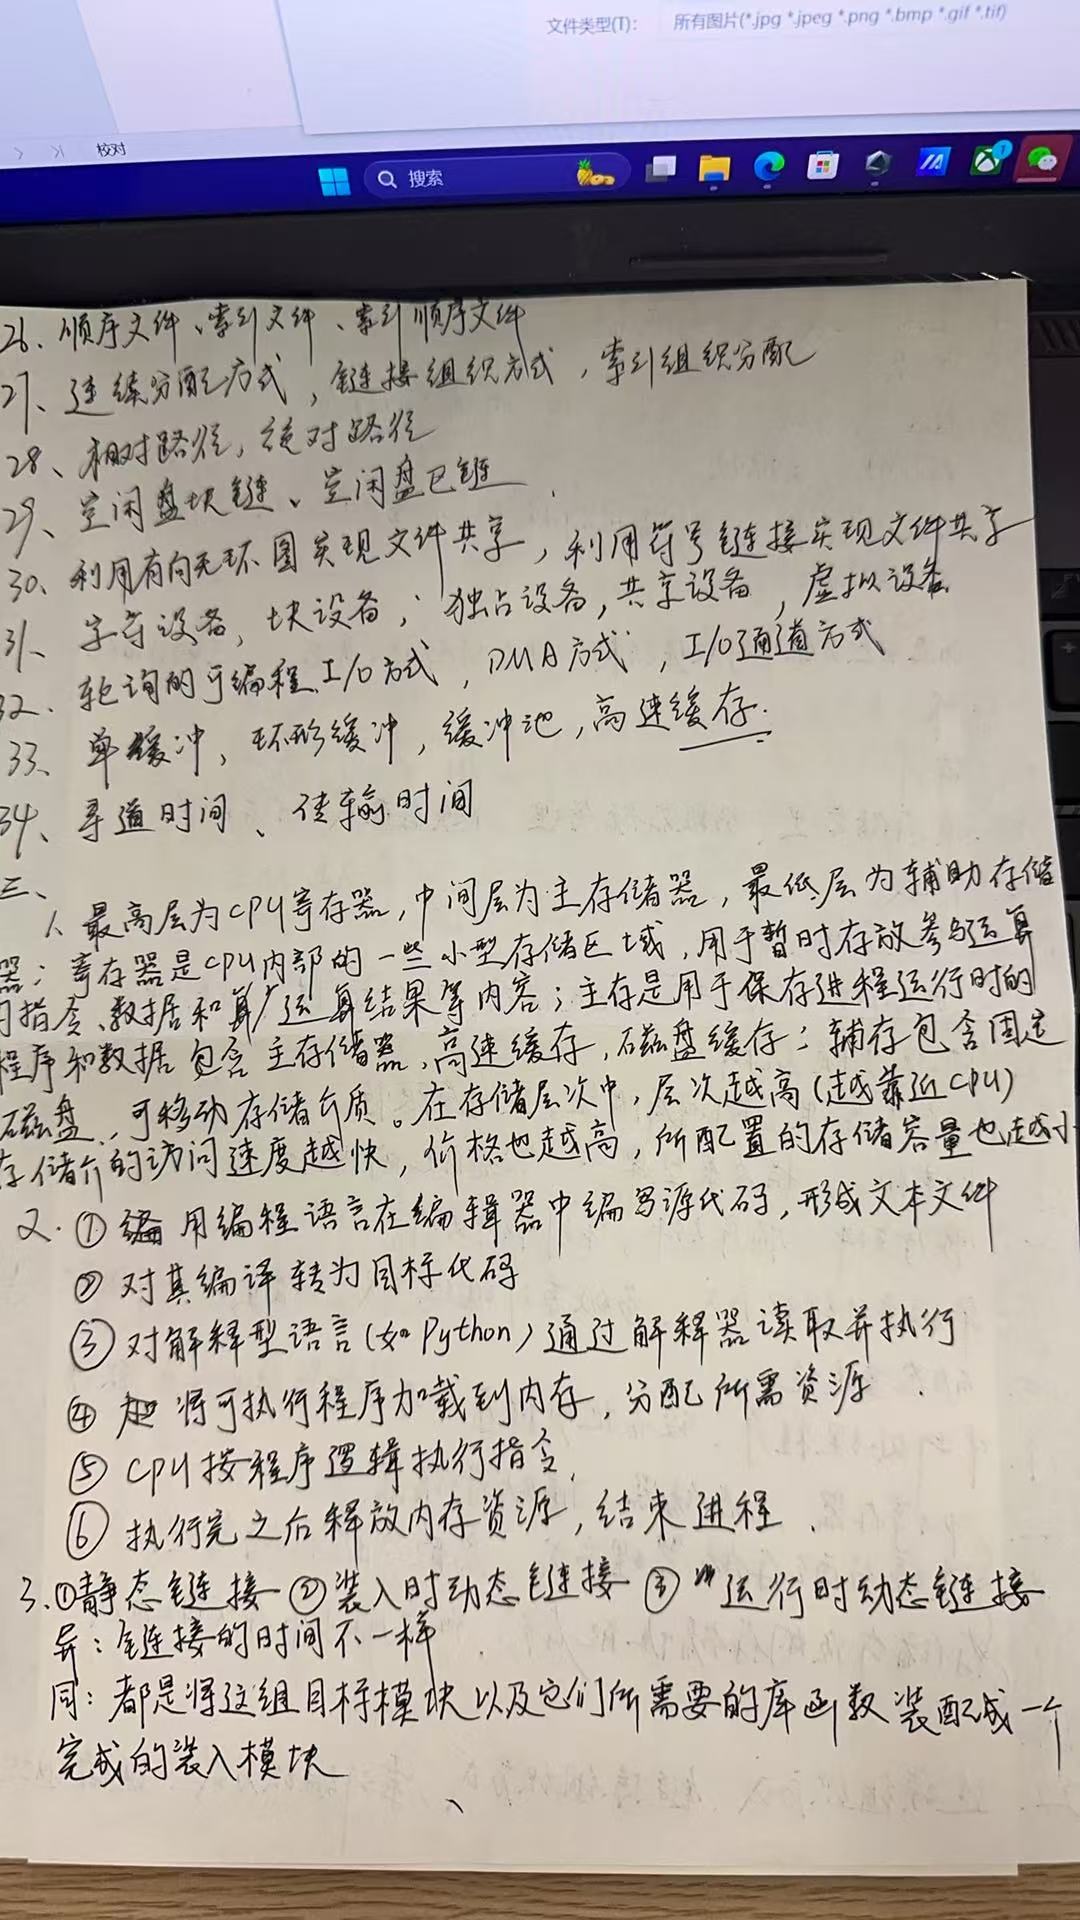 文件类型(T): 所有图片(*.jpg *.jpeg *.png *.bmp *.gif *.tif)
校对
搜索
26、顺序文件、索引文件、索引顺序文件
27、连续分配方式，链接组织方式，索引组织分配
28、相对路径，绝对路径
29、空闲盘块链、空闲盘区链
30、利用有向无环图实现文件共享，利用符号链接实现文件共享
31、字符设备，块设备；独占设备，共享设备，虚拟设备
32、轮询的可编程I/O方式，DMA方式，I/O通道方式
33、单缓冲，环形缓冲，缓冲池，高速缓存.
34、寻道时间、传输时间
三、
1、最高层为CPU寄存器，中间层为主存储器，最低层为辅助存储
器；寄存器是CPU内部的一些小型存储区域，用于暂时存放参与运算
指令、数据和运算结果等内容；主存是用于保存进程运行时的
程序和数据包含主存储器、高速缓存，磁盘缓存；辅存包含固定
磁盘、可移动存储介质。在存储层次中，层次越高(越靠近CPU)
存储介的访问速度越快，价格也越高，所配置的存储容量也越小
2.①用编程语言在编辑器中编写源代码，形成文本文件
②对其编译转为目标代码
③对解释型语言(如Python)通过解释器读取并执行
④将可执行程序加载到内存，分配所需资源
⑤CPU按程序逻辑执行指令
⑥执行完之后释放内存资源，结束进程.
3.①静态链接②装入时动态链接③运行时动态链接
异：链接的时间不一样
同：都是将这组目标模块以及它们所需要的库函数装配成一个
完成的装入模块